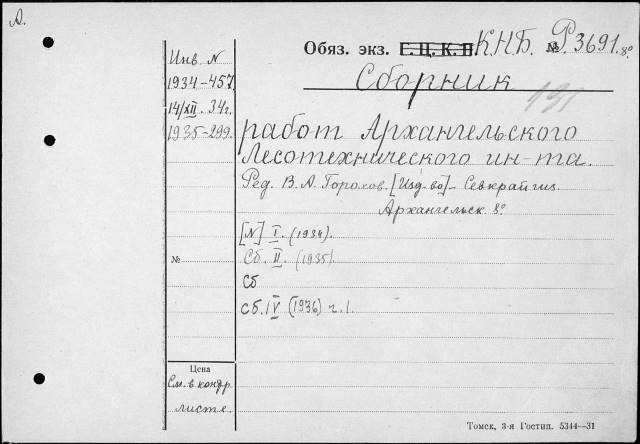 А.
Обяз. экз. Г. Ц. К. П. К.Н.Б. № Р.3691. 8°
Сборник
191
работ Архангельского
Лесотехнического ин-та.
Ред. В. А. Горохов. [Изд-во]. Севкрайгиз.
Архангельск 8°
[N] I. (1934).
Сб. II. (1935)
Сб
сб. IV (1936) г. 1.
Инв. N
1934-457
14/XII. 34 г.
1935-299.
№
Цена
См. в контр.
листе.
Томск, 3-я Гостип. 5344—31